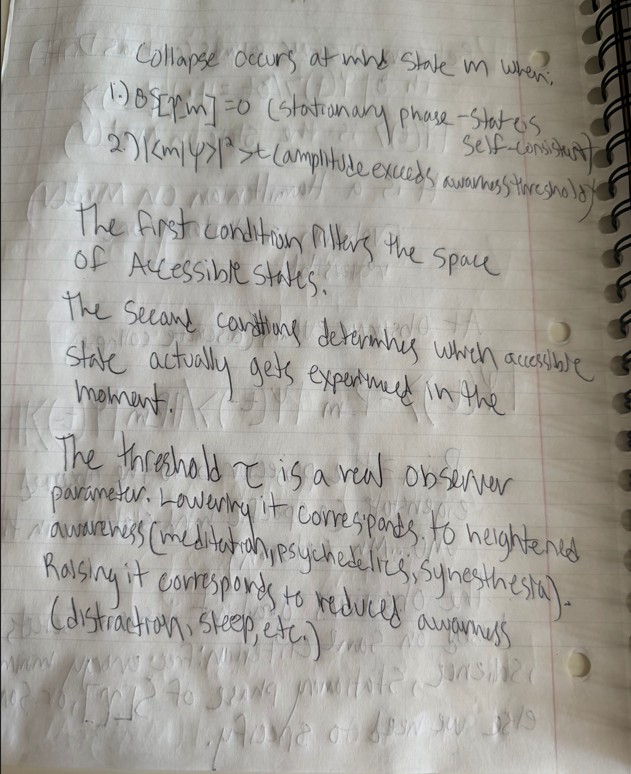 Collapse occurs at mind state m when:
1.) δS[γm] = 0 (stationary phase - state is
self-consistent)
2.) |<m|ψ>|² > τ (amplitude exceeds awarness threshold)
The first condition filters the space
of Accessible states.
The second conditions determines which accessible
state actually gets experienced in the
moment.
The threshold τ is a real observer
parameter. Lowering it corresponds to heightened
awareness (meditation, psychedelics, synesthesia).
Raising it corresponds to reduced awarness
(distraction, sleep, etc.)